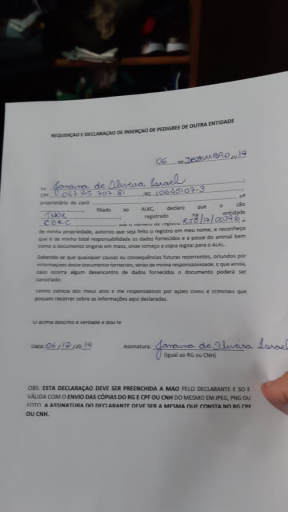 REQUISIÇÃO E DECLARAÇÃO DE INSERÇÃO DE PEDIGRES DE OUTRA ENTIDADE
06 de DEZEMBRO de 19
Eu Janaina de Oliveira Israel
CPF RG nº
proprietário do canil
THOR filiado ao ALKC, declaro que o cão
registrado na entidade
CBKC sob o número de registro
de minha propriedade, autorizo que seja feito o registro em meu nome, e reconheço
que é de minha total responsabilidade os dados fornecidos e a posse do animal bem
como o documento original em mãos, onde forneço a cópia digital para o ALKC.
Sabendo-se que quaisquer causas ou consequências futuras recorrentes, oriundos por
informações desse documentos fornecidos, serão de minha responsabilidade, e que ainda,
caso ocorra algum desencontro de dados fornecidos o documento poderá ser
cancelado.
Tenho ciência dos meus atos e me responsabilizo por ações cíveis e criminais que
possam recorrer sobre as informações aqui declaradas.
O acima descrito é verdade e dou fé
Data: 06/12/2019 Assinatura: Janaina de Oliveira Israel
(Igual ao RG ou CNH)
OBS: ESTA DECLARAÇÃO DEVE SER PREENCHIDA A MÃO PELO DECLARANTE E SÓ É
VÁLIDA COM O ENVIO DAS CÓPIAS DO RG E CPF OU CNH DO MESMO EM JPEG, PNG OU
FOTO. A ASSINATURA DO DECLARANTE DEVE SER A MESMA QUE CONSTA NO RG CPF
OU CNH.